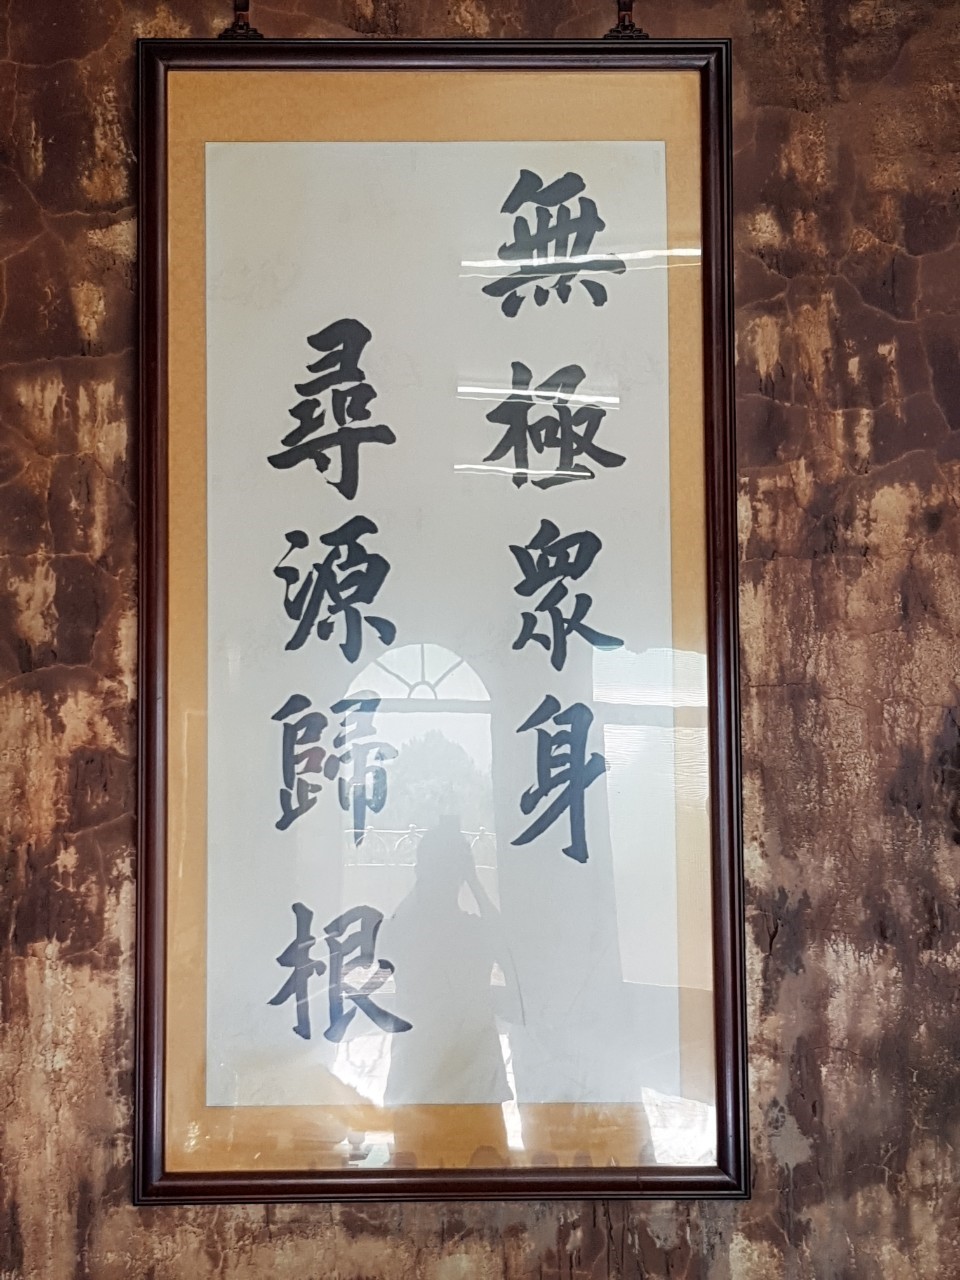 無極衆身
尋源歸根